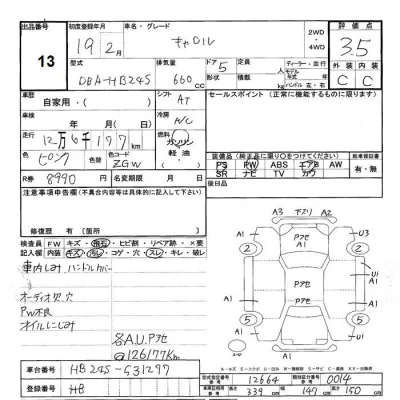 出品番号 初度登録年月 車名・グレード 2WD・4WD 評価点
13 19年2月 キャロル 3.5
型式 排気量 ドア 定員 ディーラー・並行 外装 内装
DBA-HB24S 660cc 5 形状 積載 モデル年式 ハンドル 左・右 C C
車歴 自家用・( ) シフト AT セールスポイント(正常に機能するものに限ります)
車検 年 月( ) 冷房 A/C
走行 12万6千177km 燃料 ガソリン・軽油・
色 ピンク 色替 色No. ZGW 装備品(純正品に限り○をつけてください) 新車保証書
PS PW ABS エアB AW 有・無
SR ナビ TV カワ
R券 8990 名変期限 年 月 日 後日品
注意事項申告欄(不具合内容等は具体的に記入して下さい)
修復歴 有(箇所 )
検査員記入欄 FW キズ・飛石・ヒビ割・リペア跡・×要
内装 キズ・汚レ・コゲ・穴・スレ・キレ・破レ
車内しみ ハンドルカバー
オーディオ欠.穴
PW不良
オイルにじみ
各A.U.Pアセ
@126177Km
A3 スリ A2
A1 Pアセ U3
2 2
A1 U1
Pアセ
A1 A1
5 5
Pアセ U1
A1
車台番号 HB24S-531297
登録番号 HB
A・キズ
型式指定番号 12664 類別区分番号 0014
長さ 339cm 幅 147cm 高さ 150cm